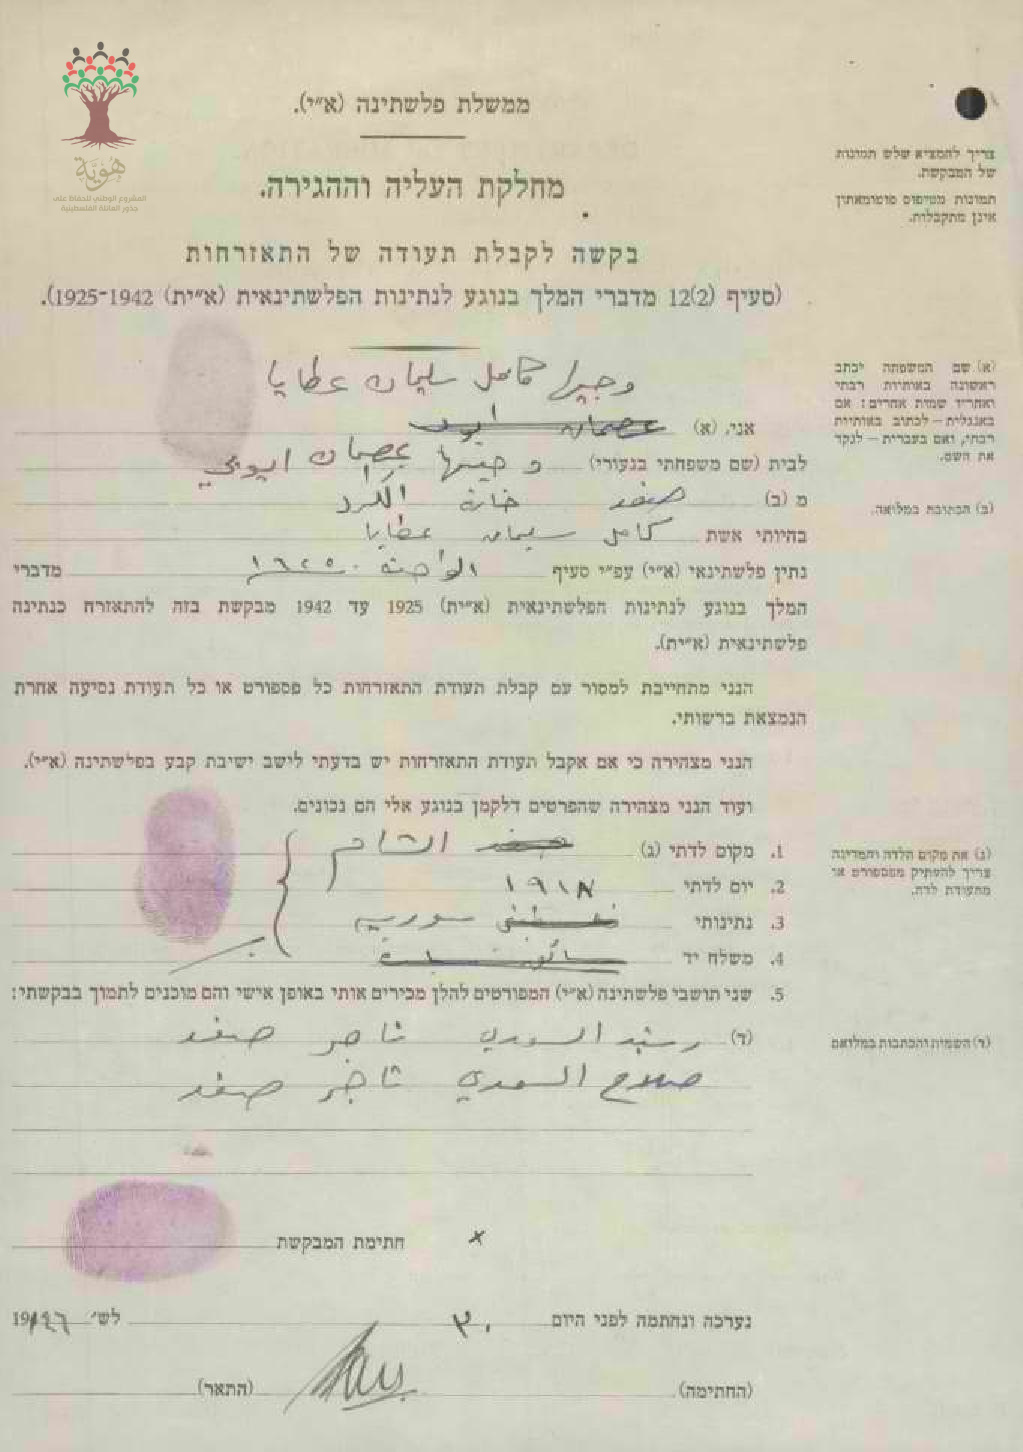 هُوِيَّة
المشروع الوطني للحفاظ على
جذور العائلة الفلسطينية
ממשלת פלשתינה (א״י).
צריך להמציא שלש תמונות
של המבקשת.
תמונות מטיפוס פוטומאתון
אינן מתקבלות.
מחלקת העליה וההגירה.
בקשה לקבלת תעודה של התאזרחות
(סעיף 12(2) מדברי המלך בנוגע לנתינות הפלשתינאית (א״ית) 1925-1942).
(א) שם המשפחה יכתב
ראשונה באותיות רבתי
ואחריו שמות אחרים: אם
באנגלית – לכתוב באותיות
רבתי, ואם בעברית – לנקד
את השם.
كامل سليمان عطايا
אני, (א) عصمان
לבית (שם משפחתי בנעורי) عصمان ايوبي
מ (ב) صفد حارة الأكراد
(ב) הכתובת במלואה.
בהיותי אשת كامل سليمان عطايا
נתין פלשתינאי (א״י) עפ״י סעיף מדברי
המלך בנוגע לנתינות הפלשתינאית (א״ית) 1925 עד 1942 מבקשת בזה להתאזרח כנתינה
פלשתינאית (א״ית).
הנני מתחייבת למסור עם קבלת תעודת התאזרחות כל פספורט או כל תעודת נסיעה אחרת
הנמצאת ברשותי.
הנני מצהירה כי אם אקבל תעודת התאזרחות יש בדעתי לישב ישיבת קבע בפלשתינה (א״י).
ועוד הנני מצהירה שהפרטים דלקמן בנוגע אלי הם נכונים.
1. מקום לדתי (ג) صفد الشام
(ג) את מקום הלדה והמדינה
צריך להעתיק מפספורט או
מתעודת לדה.
2. יום לדתי ١٩١٨
3. נתינותי سورية
4. משלח יד
5. שני תושבי פלשתינה (א״י) המפורטים להלן מכירים אותי באופן אישי והם מוכנים לתמוך בבקשתי:
(ד) رشيد السعدي تاجر صفد
(ד) השמות והכתבות במלואם
صلاح السعدي تاجر صفد
חתימת המבקשת x
נערכה ונחתמה לפני היום ٣٠ לש׳ 19
(החתימה) (התאר)